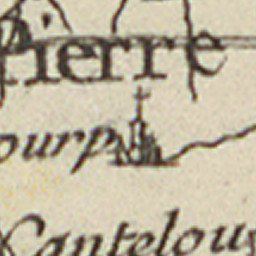 ierre
ourp
Cantelou